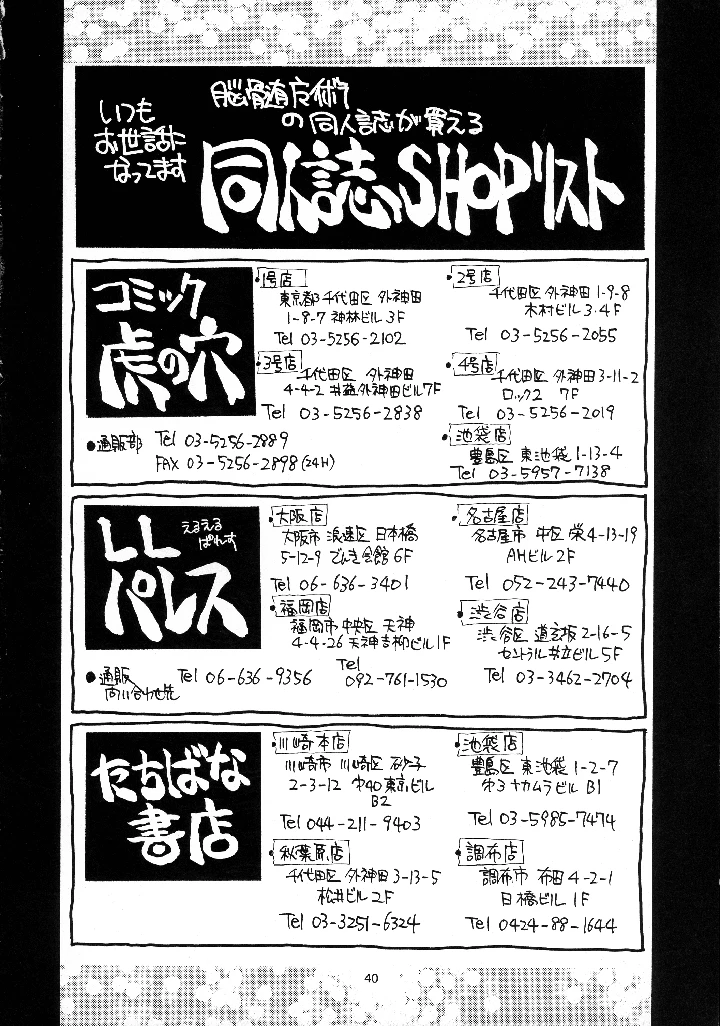 いつも
お世話に
なってます
脳骨髄占術
の同人誌が買える
同人誌SHOPリスト
コミック
虎の穴
・1号店
東京都千代田区 外神田
1-8-7 神林ビル 3F
Tel 03-5256-2102
・2号店
千代田区 外神田 1-9-8
木村ビル 3.4F
Tel 03-5256-2055
・3号店
千代田区 外神田
4-4-2 外神田ビル 7F
Tel 03-5256-2838
・4号店
千代田区 外神田 3-11-2
ロック2 7F
Tel 03-5256-2019
●通販部 Tel 03-5256-2889
FAX 03-5256-2898 (24H)
・池袋店
豊島区 東池袋 1-13-4
Tel 03-5957-7138
LL
えるえる
ぱれす
パレス
・大阪店
大阪市 浪速区 日本橋
5-12-9 でんき会館 6F
Tel 06-636-3401
・名古屋店
名古屋市 中区 栄 4-13-19
AHビル 2F
Tel 052-243-7440
・福岡店
福岡市 中央区 天神
4-4-26 天神吉柳ビル 1F
Tel
092-761-1530
・渋谷店
渋谷区 道玄坂 2-16-5
セントラル共立ビル 5F
Tel 03-3462-2704
●通販 Tel 06-636-9356
問い合わせ先
たちばな
書店
・川崎本店
川崎市 川崎区 砂子
2-3-12 オ40東京ビル
B2
Tel 044-211-9403
・池袋店
豊島区 東池袋 1-2-7
オ3ナカムラビル B1
Tel 03-5985-7474
・秋葉原店
千代田区 外神田 3-13-5
松井ビル 2F
Tel 03-3251-6324
・調布店
調布市 布田 4-2-1
日橋ビル 1F
Tel 0424-88-1644
40